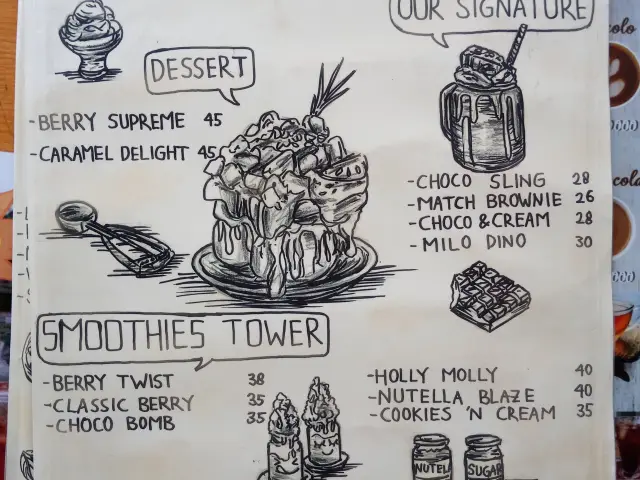 OUR SIGNATURE
DESSERT
-BERRY SUPREME 45
-CARAMEL DELIGHT 45
-CHOCO SLING 28
-MATCH BROWNIE 26
-CHOCO & CREAM 28
-MILO DINO 30
SMOOTHIES TOWER
-BERRY TWIST 38
-CLASSIC BERRY 35
-CHOCO BOMB 35
-HOLLY MOLLY 40
-NUTELLA BLAZE 40
-COOKIES 'N CREAM 35
NUTEL
SUGAR